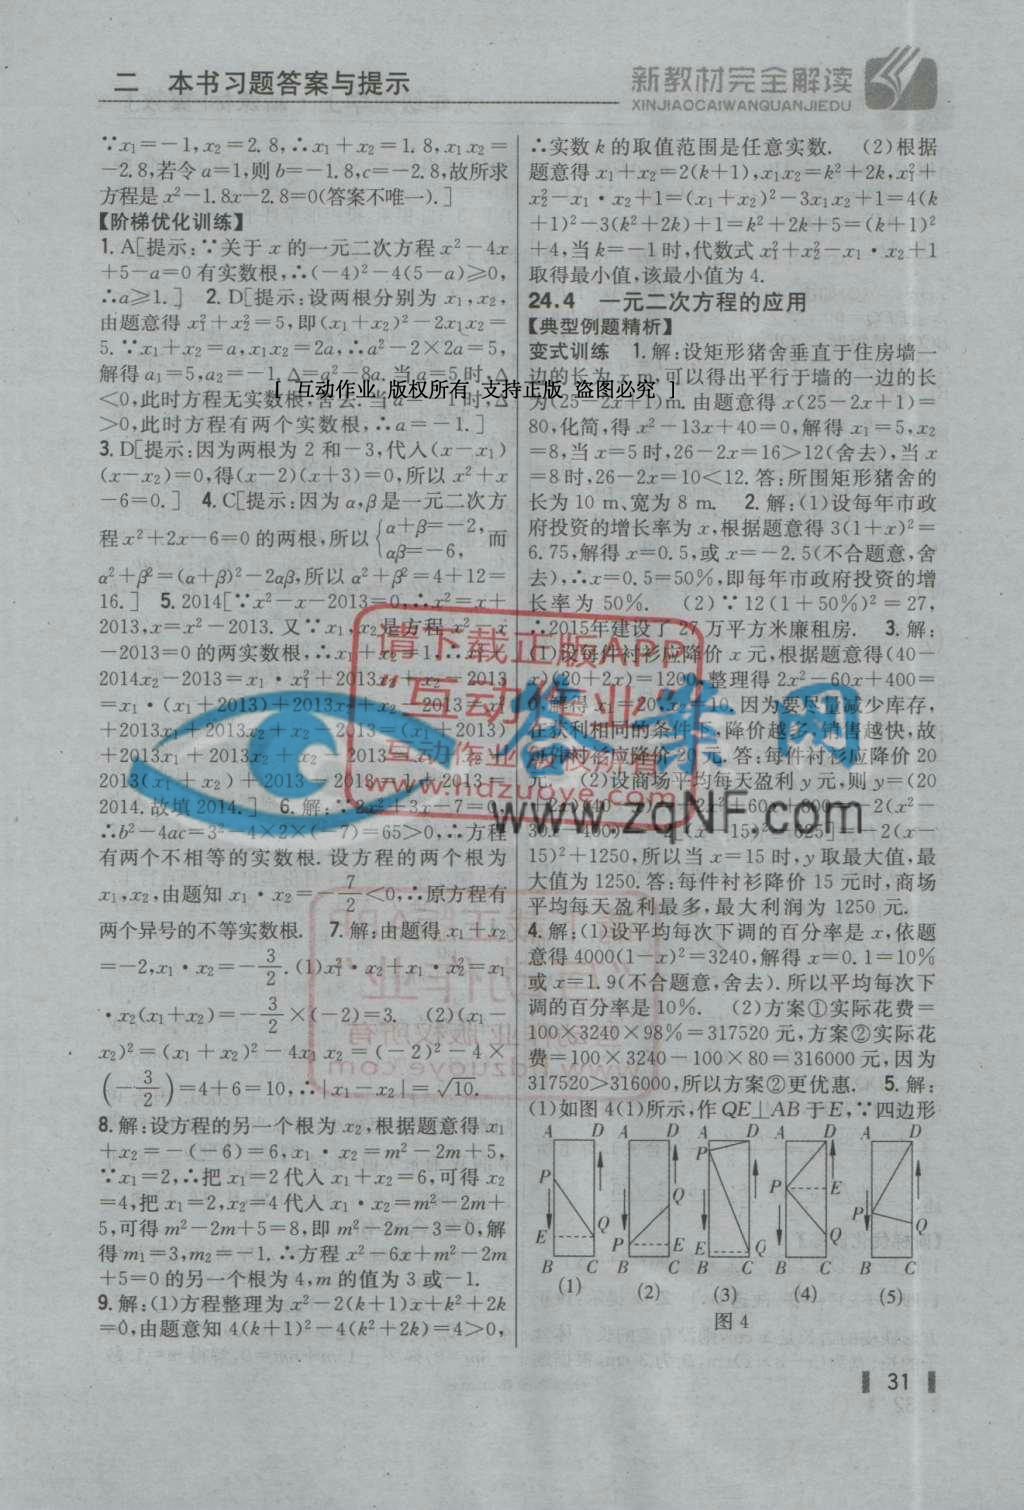 二 本书习题答案与提示
新教材完全解读
XINJIAOCAIWANQUANJIEDU
∵x₁=-1,x₂=2.8,∴x₁+x₂=1.8,x₁x₂=
-2.8,若令a=1,则b=-1.8,c=-2.8,故所求
方程是x²-1.8x-2.8=0(答案不唯一).]
【阶梯优化训练】
1. A[提示:∵关于x的一元二次方程x²-4x
+5-a=0有实数根,∴(-4)²-4(5-a)≥0,
∴a≥1.] 2. D[提示:设两根分别为x₁,x₂,
由题意得x₁²+x₂²=5,即(x₁+x₂)²-2x₁x₂=
5.∵x₁+x₂=a,x₁x₂=2a,∴a²-2×2a=5,
解得a₁=5,a₂=-1,Δ=a²-8a.当a=5时,Δ
<0,此时方程无实数根,舍去.当a=-1时,Δ
>0,此时方程有两个实数根,∴a=-1.]
3. D[提示:因为两根为2和-3,代入(x-x₁)
(x-x₂)=0,得(x-2)(x+3)=0,所以x²+x
-6=0.] 4. C[提示:因为α,β是一元二次方
程x²+2x-6=0的两根,所以{α+β=-2, αβ=-6, 而
α²+β²=(α+β)²-2αβ,所以α²+β²=4+12=
16.] 5. 2014[∵x²-x-2013=0,∴x²=x+
2013,x=x²-2013.又∵x₁,x₂是方程x²-x
-2013=0的两实数根,∴x₁+x₂=1,∴
2014x₂-2013=x₁·x₁²+2013x₂+x₂-2013
=x₁·(x₁+2013)+2013x₂+x₂-2013=x₁²
+2013x₁+2013x₂+x₂-2013=(x₁+2013)
+2013x₁+2013x₂+x₂-2013=x₁+x₂+
2013(x₁+x₂)+2013-2013=1+2013=
2014.故填2014.] 6. 解:∵2x²+3x-7=0,
∴b²-4ac=3²-4×2×(-7)=65>0,∴方程
有两个不相等的实数根.设方程的两个根为
x₁,x₂,由题知x₁·x₂=-7/2<0,∴原方程有
两个异号的不等实数根. 7. 解:由题得x₁+x₂
=-2,x₁·x₂=-3/2.(1)x₁²·x₂+x₁·x₂²=x₁
·x₂(x₁+x₂)=-3/2×(-2)=3. (2)(x₁-
x₂)²=(x₁+x₂)²-4x₁x₂=(-2)²-4×
(-3/2)=4+6=10,∴|x₁-x₂|=√10.
8. 解:设方程的另一个根为x₂,根据题意得x₁
+x₂=-(-6)=6,x₁·x₂=m²-2m+5,
∵x₁=2,∴把x₁=2代入x₁+x₂=6,可得x₂
=4,把x₁=2,x₂=4代入x₁·x₂=m²-2m+
5,可得m²-2m+5=8,即m²-2m-3=0,解
得m₁=3,m₂=-1.∴方程x²-6x+m²-2m
+5=0的另一个根为4,m的值为3或-1.
9. 解:(1)方程整理为x²-2(k+1)x+k²+2k
=0,由题意知4(k+1)²-4(k²+2k)=4>0,
∴实数k的取值范围是任意实数. (2)根据
题意得x₁+x₂=2(k+1),x₁x₂=k²+2k,x₁²+
x₂²-x₁·x₂+1=(x₁+x₂)²-3x₁x₂+1=4(k
+1)²-3(k²+2k)+1=k²+2k+5=(k+1)²
+4,当k=-1时,代数式x₁²+x₂²-x₁·x₂+1
取得最小值,该最小值为4.
24.4 一元二次方程的应用
【典型例题精析】
变式训练 1. 解:设矩形猪舍垂直于住房墙一
边的长为x m,可以得出平行于墙的一边的长
为(25-2x+1)m.由题意得x(25-2x+1)=
80,化简,得x²-13x+40=0,解得x₁=5,x₂
=8,当x=5时,26-2x=16>12(舍去),当x
=8时,26-2x=10<12.答:所围矩形猪舍的
长为10 m、宽为8 m. 2. 解:(1)设每年市政
府投资的增长率为x,根据题意得3(1+x)²=
6.75,解得x=0.5,或x=-2.5(不合题意,舍
去),∴x=0.5=50%,即每年市政府投资的增
长率为50%. (2)∵12(1+50%)²=27,
∴2015年建设了27万平方米廉租房. 3. 解:
(1)设每件衬衫应降价x元,根据题意得(40-
x)(20+2x)=1200,整理得2x²-60x+400=
0,解得x₁=20,x₂=10.因为要尽量减少库存,
在获利相同的条件下,降价越多,销售越快,故
每件衬衫应降价20元.答:每件衬衫应降价20
元. (2)设商场平均每天盈利y元,则y=(20
15)²+1250,所以当x=15时,y取最大值,最
大值为1250.答:每件衬衫降价15元时,商场
平均每天盈利最多,最大利润为1250元.
4. 解:(1)设平均每次下调的百分率是x,依题
意得4000(1-x)²=3240,解得x=0.1=10%
或x=1.9(不合题意,舍去).所以平均每次下
调的百分率是10%. (2)方案①实际花费=
100×3240×98%=317520元,方案②实际花
费=100×3240-100×80=316000元,因为
317520>316000,所以方案②更优惠. 5. 解:
(1)如图4(1)所示,作QE⊥AB于E,∵四边形
A D A D A D A D A D
P Q E B C (1)
Q P E B C (2)
P E Q B C (3)
P E Q B C (4)
P Q B C (5)
图4
31
[ 互动作业 版权所有 支持正版 盗图必究 ]
请下载正版APP
“互动作业”
互动作业 版权所有
www.hdzuoye.com
答案网
www.zqNF.com